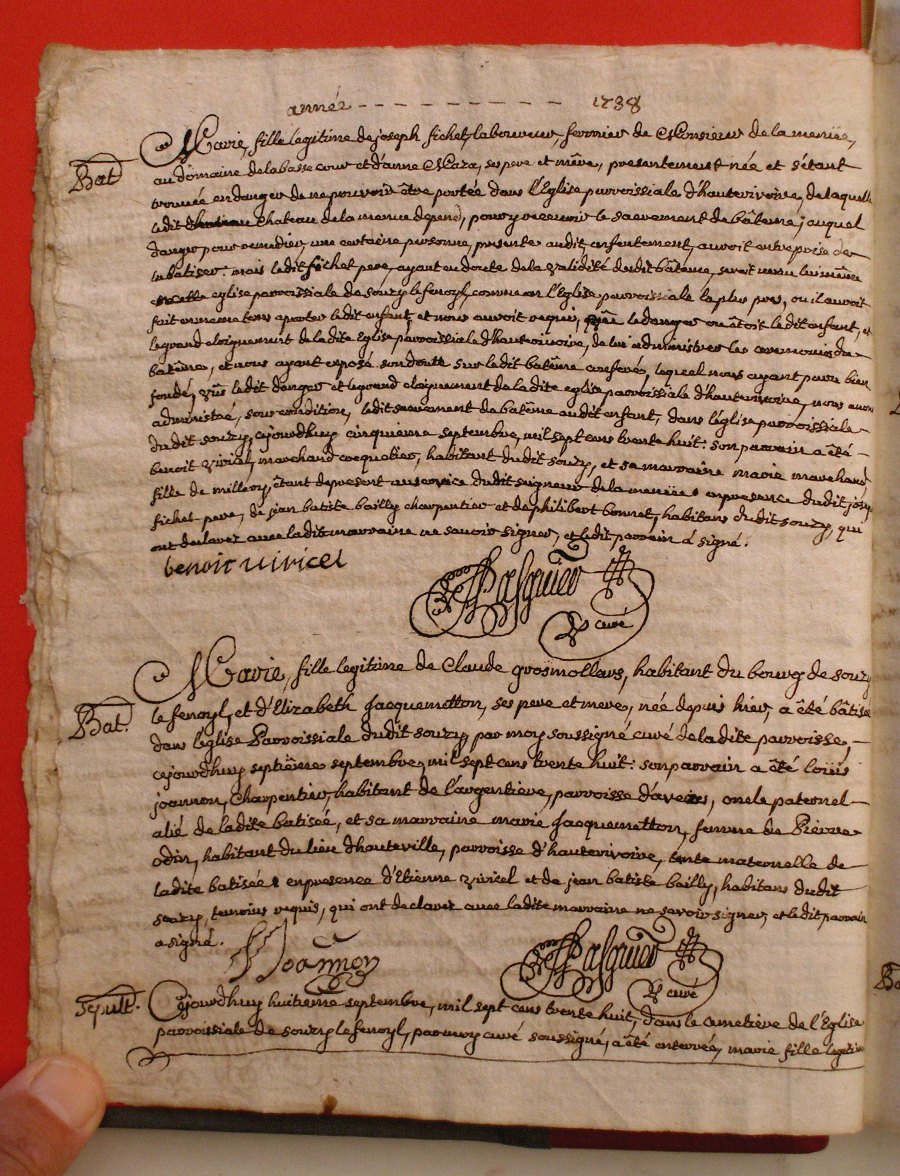 année - - - - - - - - - - 1738
Bat
Marie, fille legitime de joseph fichet, laboureur, fermier de Monsieur de la menüe,
au domaine de la basse cour et d'anne Maza, ses pere et mêre, presentement née et s'étant
trouvée en danger de ne pouvoir être portée dans l'Eglise parroissiale d'hauterivoire, de laquelle
ledit chateau de la menue depend, pour y recevoir le sacrement de bâteme; auquel
danger pour remedier, une certaine personne, presente audit enfentement, auroit entrepris de
la batiser: mais ledit fichet pere, ayant eu doute de la validité dudit bâteme, seroit venu lui même
cette eglise parroissiale de souzy le fenoyl, comme en l'Eglise parroissiale la plus pres, ou il auroit
fait en meme tems aporter ledit enfant, et nous auroit requis, vû le danger ou êtoit ledit enfant, et
le grand eloignement de ladite Eglise parroissiale d'hauterivoire, de lui administrer les ceremonies du
batême, et nous ayant exposé son doute sur ledit batême conferé, lequel nous ayant paru bien
fondé, vû ledit danger et le grand eloignement de ladite eglise parroissiale d'hauterivoire, nous avons
administré, sous condition, ledit sacrement de batême audit enfant, dans l'église parroissiale
dudit souzy, cejourdhuy cinquieme septembre, mil sept cens trente huit: son parrain a été
benoit vivicel, marchand coquetier, habitant dudit souzy, et sa marraine marie marchand
fille de millery, êtant de present au service dudit seigneur de la menüe: en presence dudit joseph
fichet pere, de jean batiste bailly charpentier et de philibert bonnet, habitans dudit souzy, qui
ont declarer avec ladite marraine ne savoir signer, et ledit parrain à signé.
benoit vivicel
Pasquier
curé
Bat.
Marie, fille legitime de Claude grosmollars, habitant du bourg de souzy
le fenoyl, et d'Elizabeth Jacquemetton, ses pere et mere, née depuis hier, a été bâtisée
dans l'église Parroissiale dudit souzy, par moy soussigné curé de ladite parroisse,
cejourdhuy septiême septembre, mil sept cens trente huit: son parrain a été loüis
joannon, charpentier, habitant de l'argentiere, parroisse d'aveizes, oncle paternel
alié de ladite batisée, et sa marraine marie Jacquemetton, femme de Pierre
odin, habitant du lieu d'hauteville, parroisse d'hauterivoire, tante maternelle de
ladite batisée: en presence d'Etienne vivicel et de jean batiste bailly, habitans dudit
souzy, temoins requis, qui ont declarer avec ladite marraine ne savoir signer, et ledit parrain
a signé.
Joannon
Pasquier
curé
Sepult.
Cejourdhuy huitieme septembre, mil sept cens trente huit, dans le cemetiére de l'Eglise
parroissiale de souzy le fenoyl, par moy curé soussigné, a été enterrée, marie fille legitime